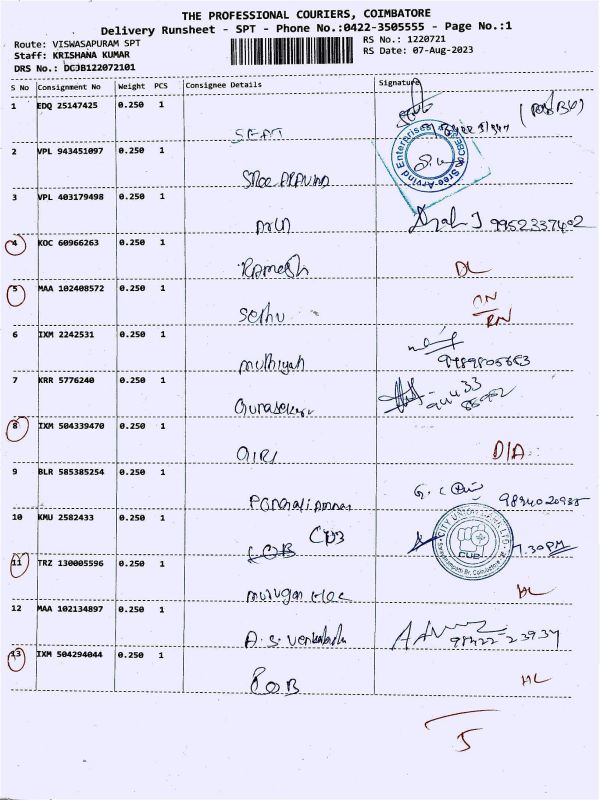 THE PROFESSIONAL COURIERS, COIMBATORE
Delivery Runsheet - SPT - Phone No.:0422-3505555 - Page No.:1
Route: VISWASAPURAM SPT
RS No.: 1220721
Staff: KRISHANA KUMAR
RS Date: 07-Aug-2023
DRS No.: DCJB122072101
S No Consignment No Weight PCS Consignee Details Signature
1 EDQ 25147425 0.250 1
2 VPL 943451097 0.250 1
Sree Arvind Enterprises
3 VPL 403179498 0.250 1
9952337402
4 KOC 60966263 0.250 1
Ramesh DL
5 MAA 102408572 0.250 1
Sethu
6 IXM 2242531 0.250 1
Muthiyah
7 KRR 5776240 0.250 1
Gunasekar 94433
8 IXM 504339470 0.250 1
GIRI D/A
9 BLR 585385254 0.250 1
Panchali Amman
10 KMU 2582433 0.250 1
CUB
CITY UNION BANK LTD.
CUB
7.30 PM
11 TRZ 130005596 0.250 1
Murugan HL
12 MAA 102134897 0.250 1
A.S. Venkatesh 98422-23937
13 IXM 504294044 0.250 1
HL
5